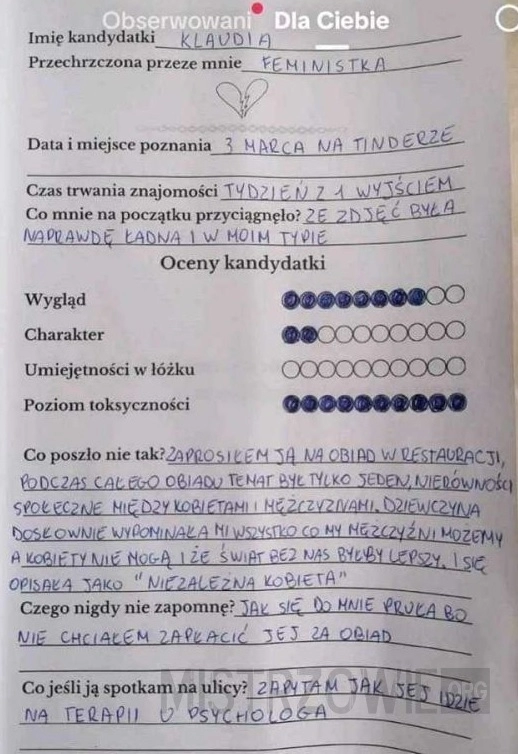 Obserwowani Dla Ciebie
Imię kandydatki KLAUDIA
Przechrzczona przeze mnie FEMINISTKA
Data i miejsce poznania 3 MARCA NA TINDERZE
Czas trwania znajomości TYDZIEŃ Z 1 WYJŚCIEM
Co mnie na początku przyciągnęło? ZE ZDJĘĆ BYŁA
NAPRAWDĘ ŁADNA I W MOIM TYPIE
Oceny kandydatki
Wygląd
Charakter
Umiejętności w łóżku
Poziom toksyczności
Co poszło nie tak? ZAPROSIŁEM JĄ NA OBIAD W RESTAURACJI,
PODCZAS CAŁEGO OBIADU TEMAT BYŁ TYLKO JEDEN, NIERÓWNOŚCI
SPOŁECZNE MIĘDZY KOBIETAMI I MĘŻCZYZNAMI. DZIEWCZYNA
DOSŁOWNIE WYPOMINAŁA MI WSZYSTKO CO MY MĘZCZYŹNI MOŻEMY
A KOBIETY NIE MOGĄ I ŻE ŚWIAT BEZ NAS BYŁBY LEPSZY. I SIĘ
OPISAŁA JAKO "NIEZALEŻNA KOBIETA"
Czego nigdy nie zapomnę? JAK SIĘ DO MNIE PRUŁA BO
NIE CHCIAŁEM ZAPŁACIĆ JEJ ZA OBIAD
MISTRZOWIE.ORG
Co jeśli ją spotkam na ulicy? ZAPYTAM JAK JEJ IDZIE
NA TERAPII U PSYCHOLOGA